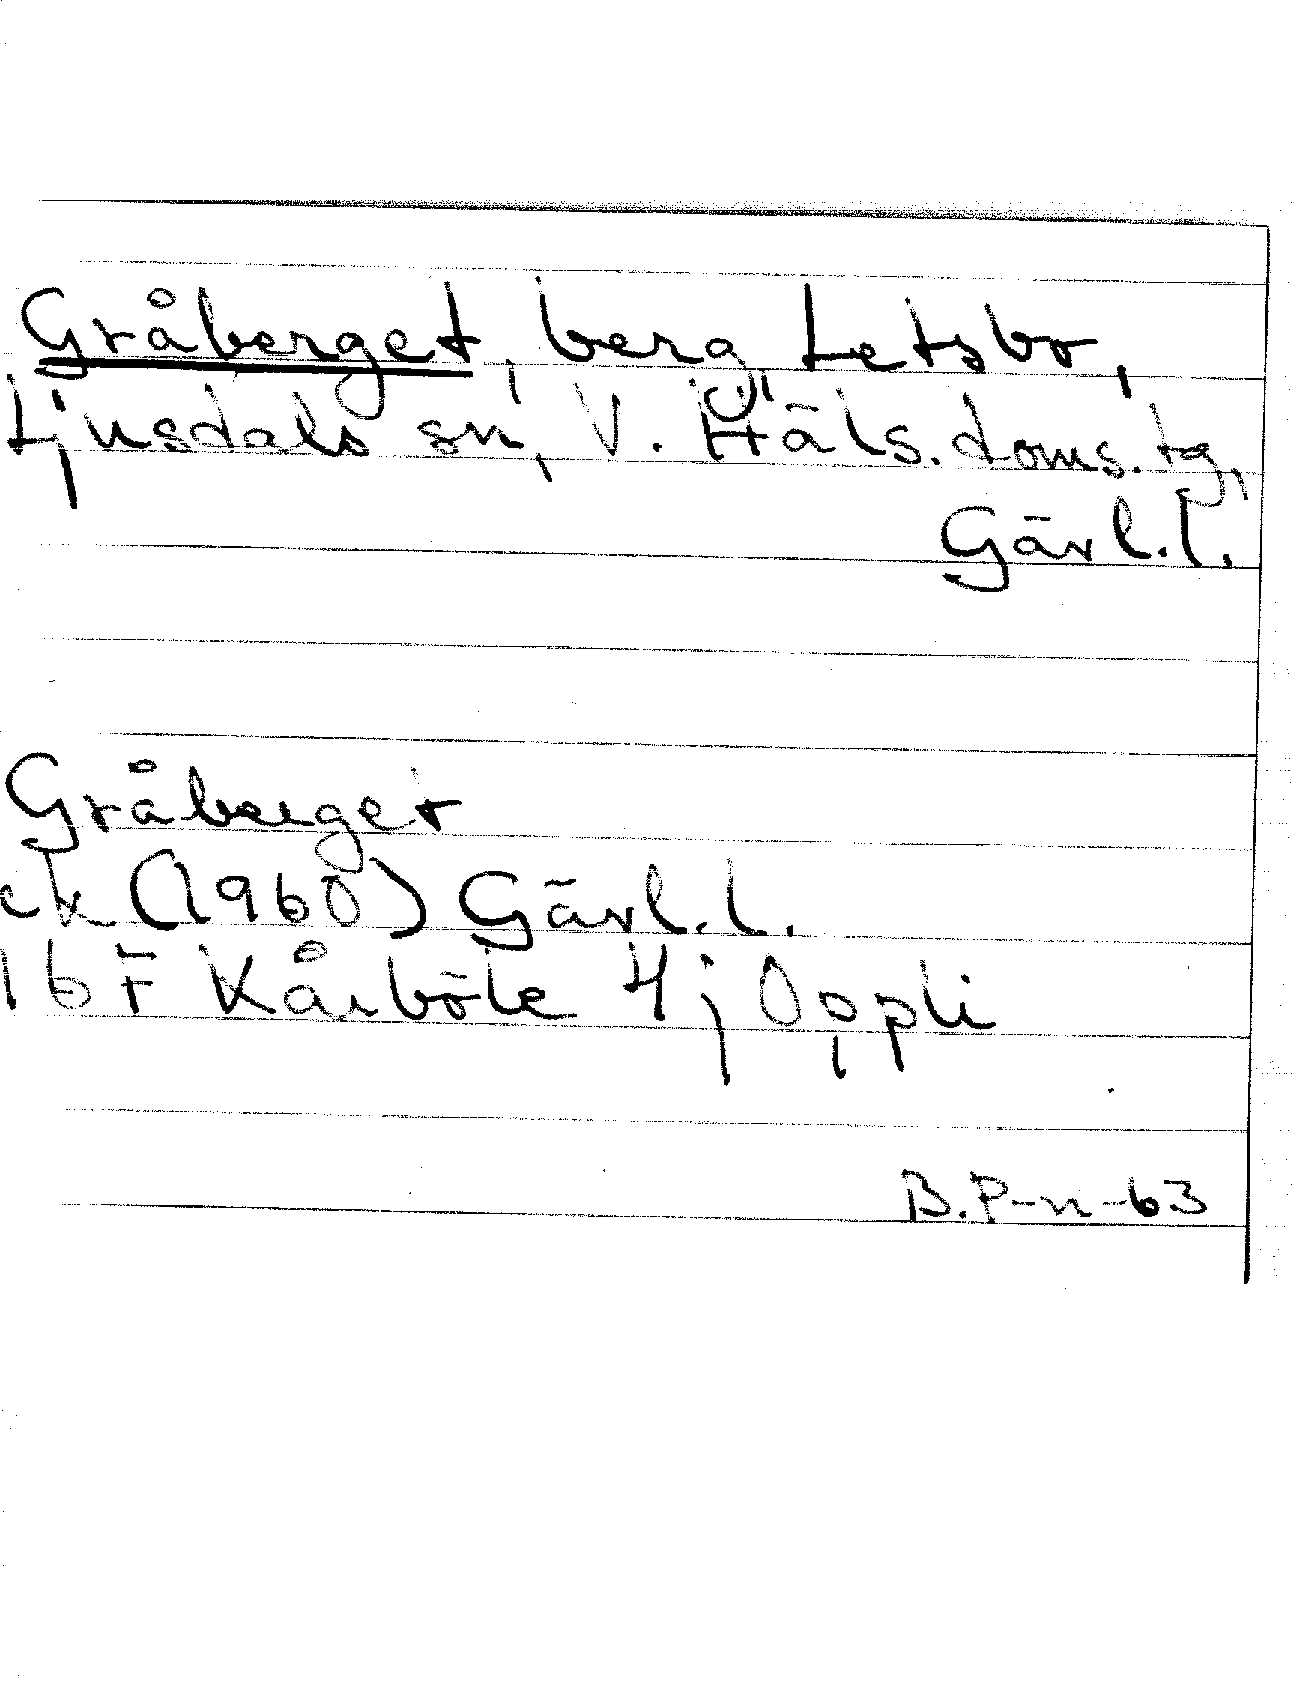 Gråberget, berg, Letsbo,
Ljusdals sn, V. Häls. doms. tg,
Gävl. l.
Gråberget
ek (1960) Gävl. l.
16 F Kårböle 4 j Oppli
B.P-n-63